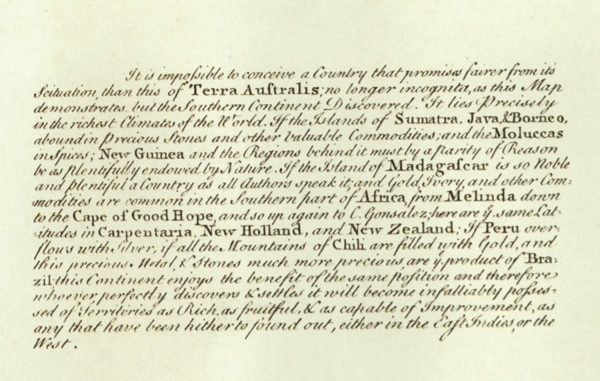 It is impoſsible to conceive a Country that promises fairer from its
Scituation, than this of Terra Auſtralis; no longer incognita, as this Map
demonstrates, but the Southern Continent Discovered. It lies Precisely
in the richest Climates of the World. If the Islands of Sumatra, Java, & Borneo,
abound in Precious Stones and other Valuable Commodities; and the Moluccas
in Spices; New Guinea and the Regions behind it must by a parity of Reason
be as plentifully endowed by Nature. If the Island of Madagaſcar is so Noble
and plentiful a Country as all Authors speak it, and Gold, Ivory, and other Com=
modities are common in the Southern part of Africa, from Melinda down
to the Cape of Good Hope, and so up again to C. Gonsalez; here are yͤ same Lat=
itudes in Carpentaria, New Holland, and New Zealand; If Peru over=
flows with Silver, if all the Mountains of Chili are filled with Gold, and
this precious Metal, & Stones much more precious are yͤ product of Bra=
zil, this Continent enjoys the benefit of the same poſition and therefore
whoever perfectly discovers & settles it will become infalliably poſses=
sed of Territories as Rich, as fruitful, & as capable of Improvement, as
any that have been hitherto found out, either in the Eaſt Indies, or the
West.